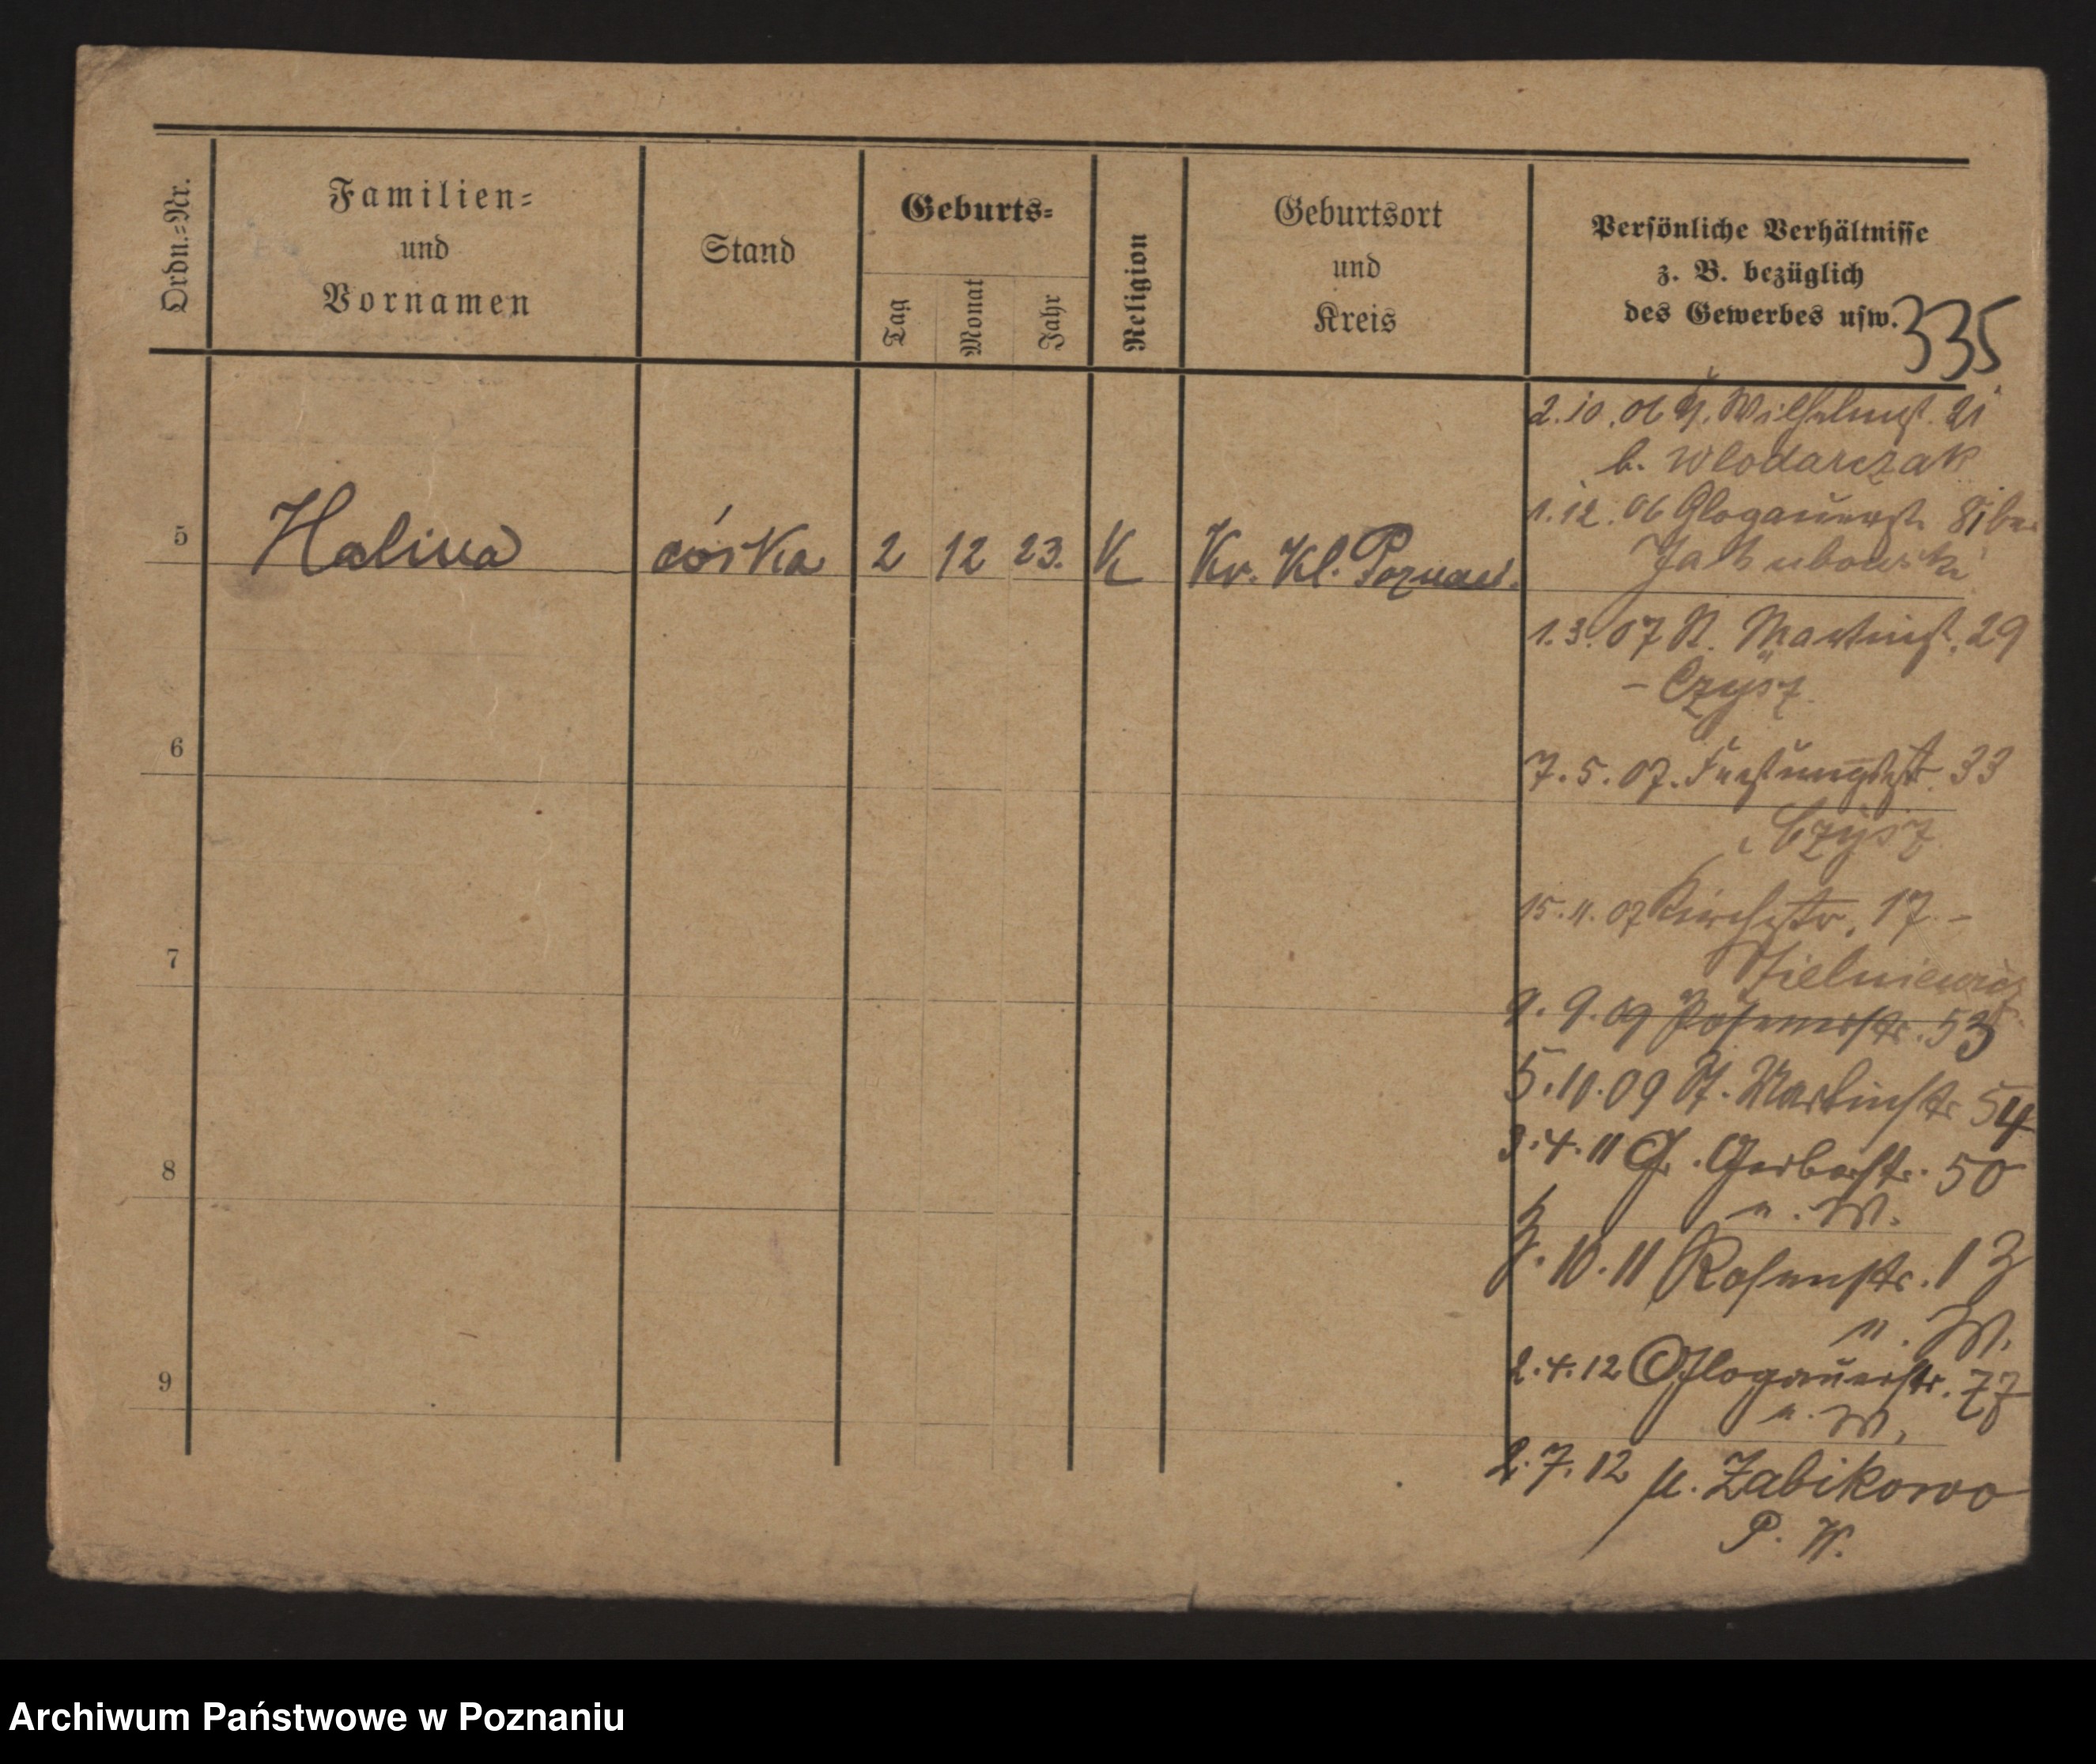 Ordn.-Nr.
Familien-
und
Vornamen
Stand
Geburts-
Tag
Monat
Jahr
Religion
Geburtsort
und
Kreis
Persönliche Verhältnisse
z. B. bezüglich
des Gewerbes usw.
335
5 Halina córka 2 12 23. K Kr. Kl. Poznań.
6
7
8
9
2.10.06 Wilhelmst. 21
b. Wlodarczak
1.12.06 Glogauerst. 81 bei
Jakubowski
1.3.07 St. Martinst. 29
- Czysz
7.5.07. Festungsst. 33
Czysz
15.11.07 Kirchstr. 17 -
Zielniewicz
9.9.09 Posenerstr. 53
5.10.09 St. Martinstr 54
3.4.11 Gr. Gerberstr. 50
n. W.
10.11 Rosenstr. 13
n. W.
2.4.12 Glogauerstr. 77
n. W.
2.7.12 n. Zabikowo
P. W.
Archiwum Państwowe w Poznaniu